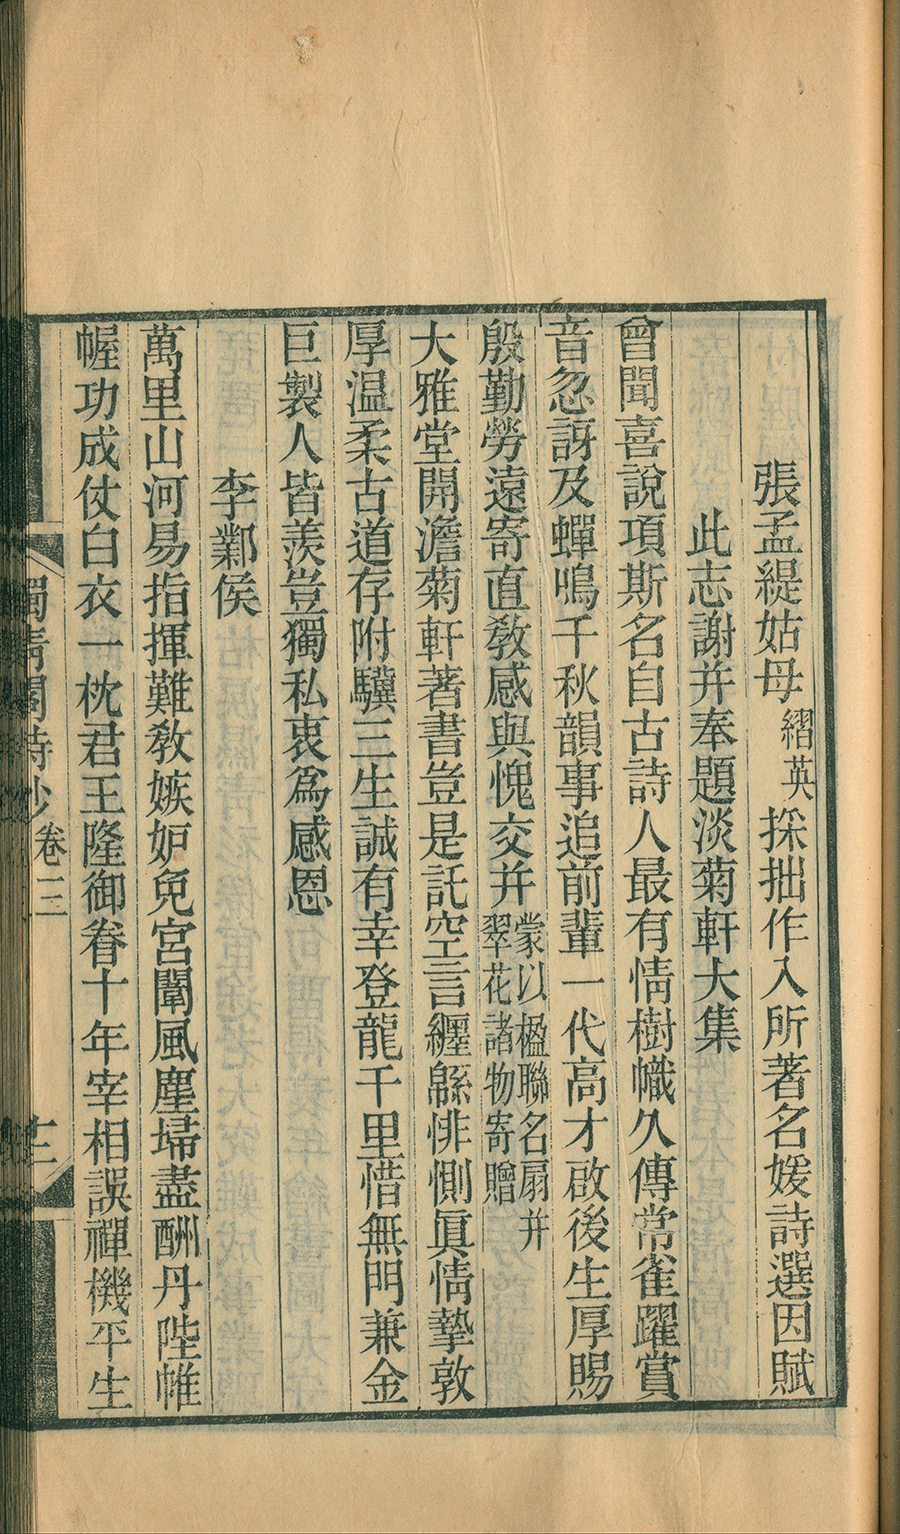 張孟緹姑母䌌英採拙作入所著名媛詩選因賦
此志謝并奉題淡菊軒大集
曾聞喜說項斯名自古詩人最有情樹幟久傳常雀躍賞
音忽訝及蟬鳴千秋韻事追前輩一代高才啟後生厚賜
殷勤勞遠寄直教感與愧交并蒙以楹聯名扇并翠花諸物寄贈
大雅堂開澹菊軒著書豈是託空言纏緜悱惻眞情摯敦
厚温柔古道存附驥三生誠有幸登龍千里惜無門兼金
巨製人皆羨豈獨私衷爲感恩
李鄴侯
萬里山河易指揮難教嫉妒免宮闈風塵埽盡酬丹陛帷
幄功成仗白衣一枕君王隆御眷十年宰相誤禪機平生
獨清閣詩鈔卷三